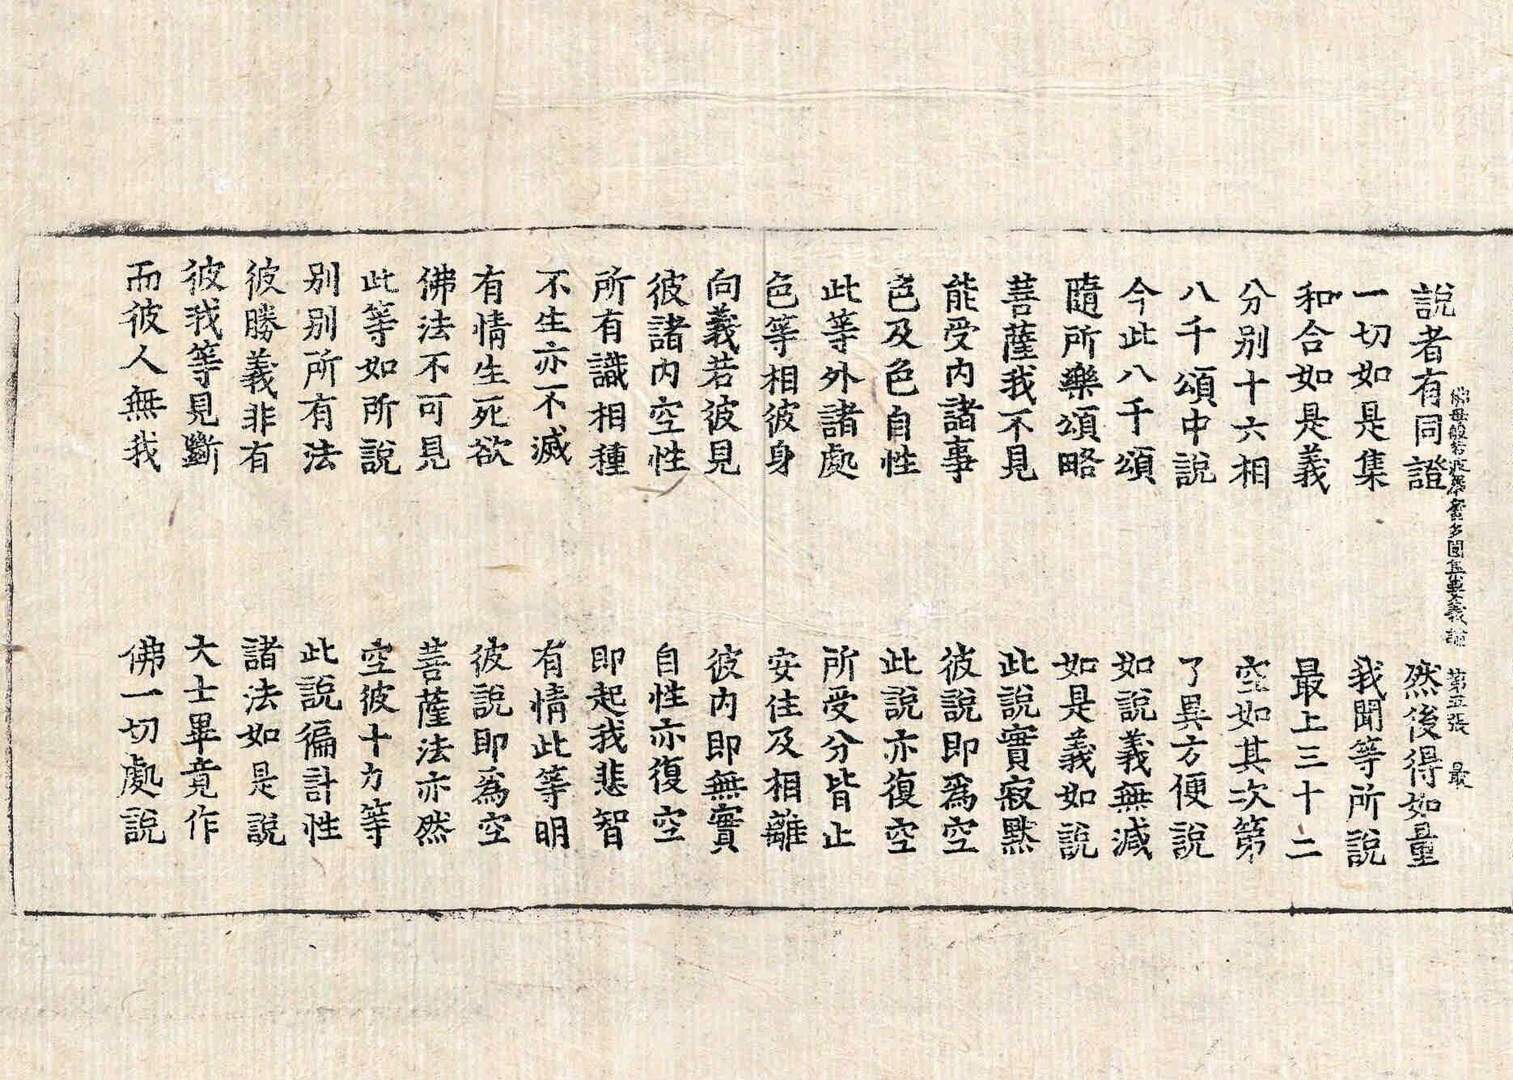 佛母般若波羅蜜多圓集要義論 第五張 最
說者有同證 然後得如量
一切如是集 我聞等所說
和合如是義 最上三十二
分别十六相 空如其次第
八千頌中說 了異方便說
今此八千頌 如說義無減
隨所樂頌略 如是義如說
菩薩我不見 此說實寂黙
能受内諸事 彼說即爲空
色及色自性 此說亦復空
此等外諸處 所受分皆止
色等相彼身 安住及相離
向義若彼見 彼内即無實
彼諸内空性 自性亦復空
所有識相種 即起我悲智
不生亦不滅 有情此等明
有情生死欲 彼說即爲空
佛法不可見 菩薩法亦然
此等如所說 空彼十力等
别别所有法 此說徧計性
彼勝義非有 諸法如是說
彼我等見斷 大士畢竟作
而彼人無我 佛一切處說